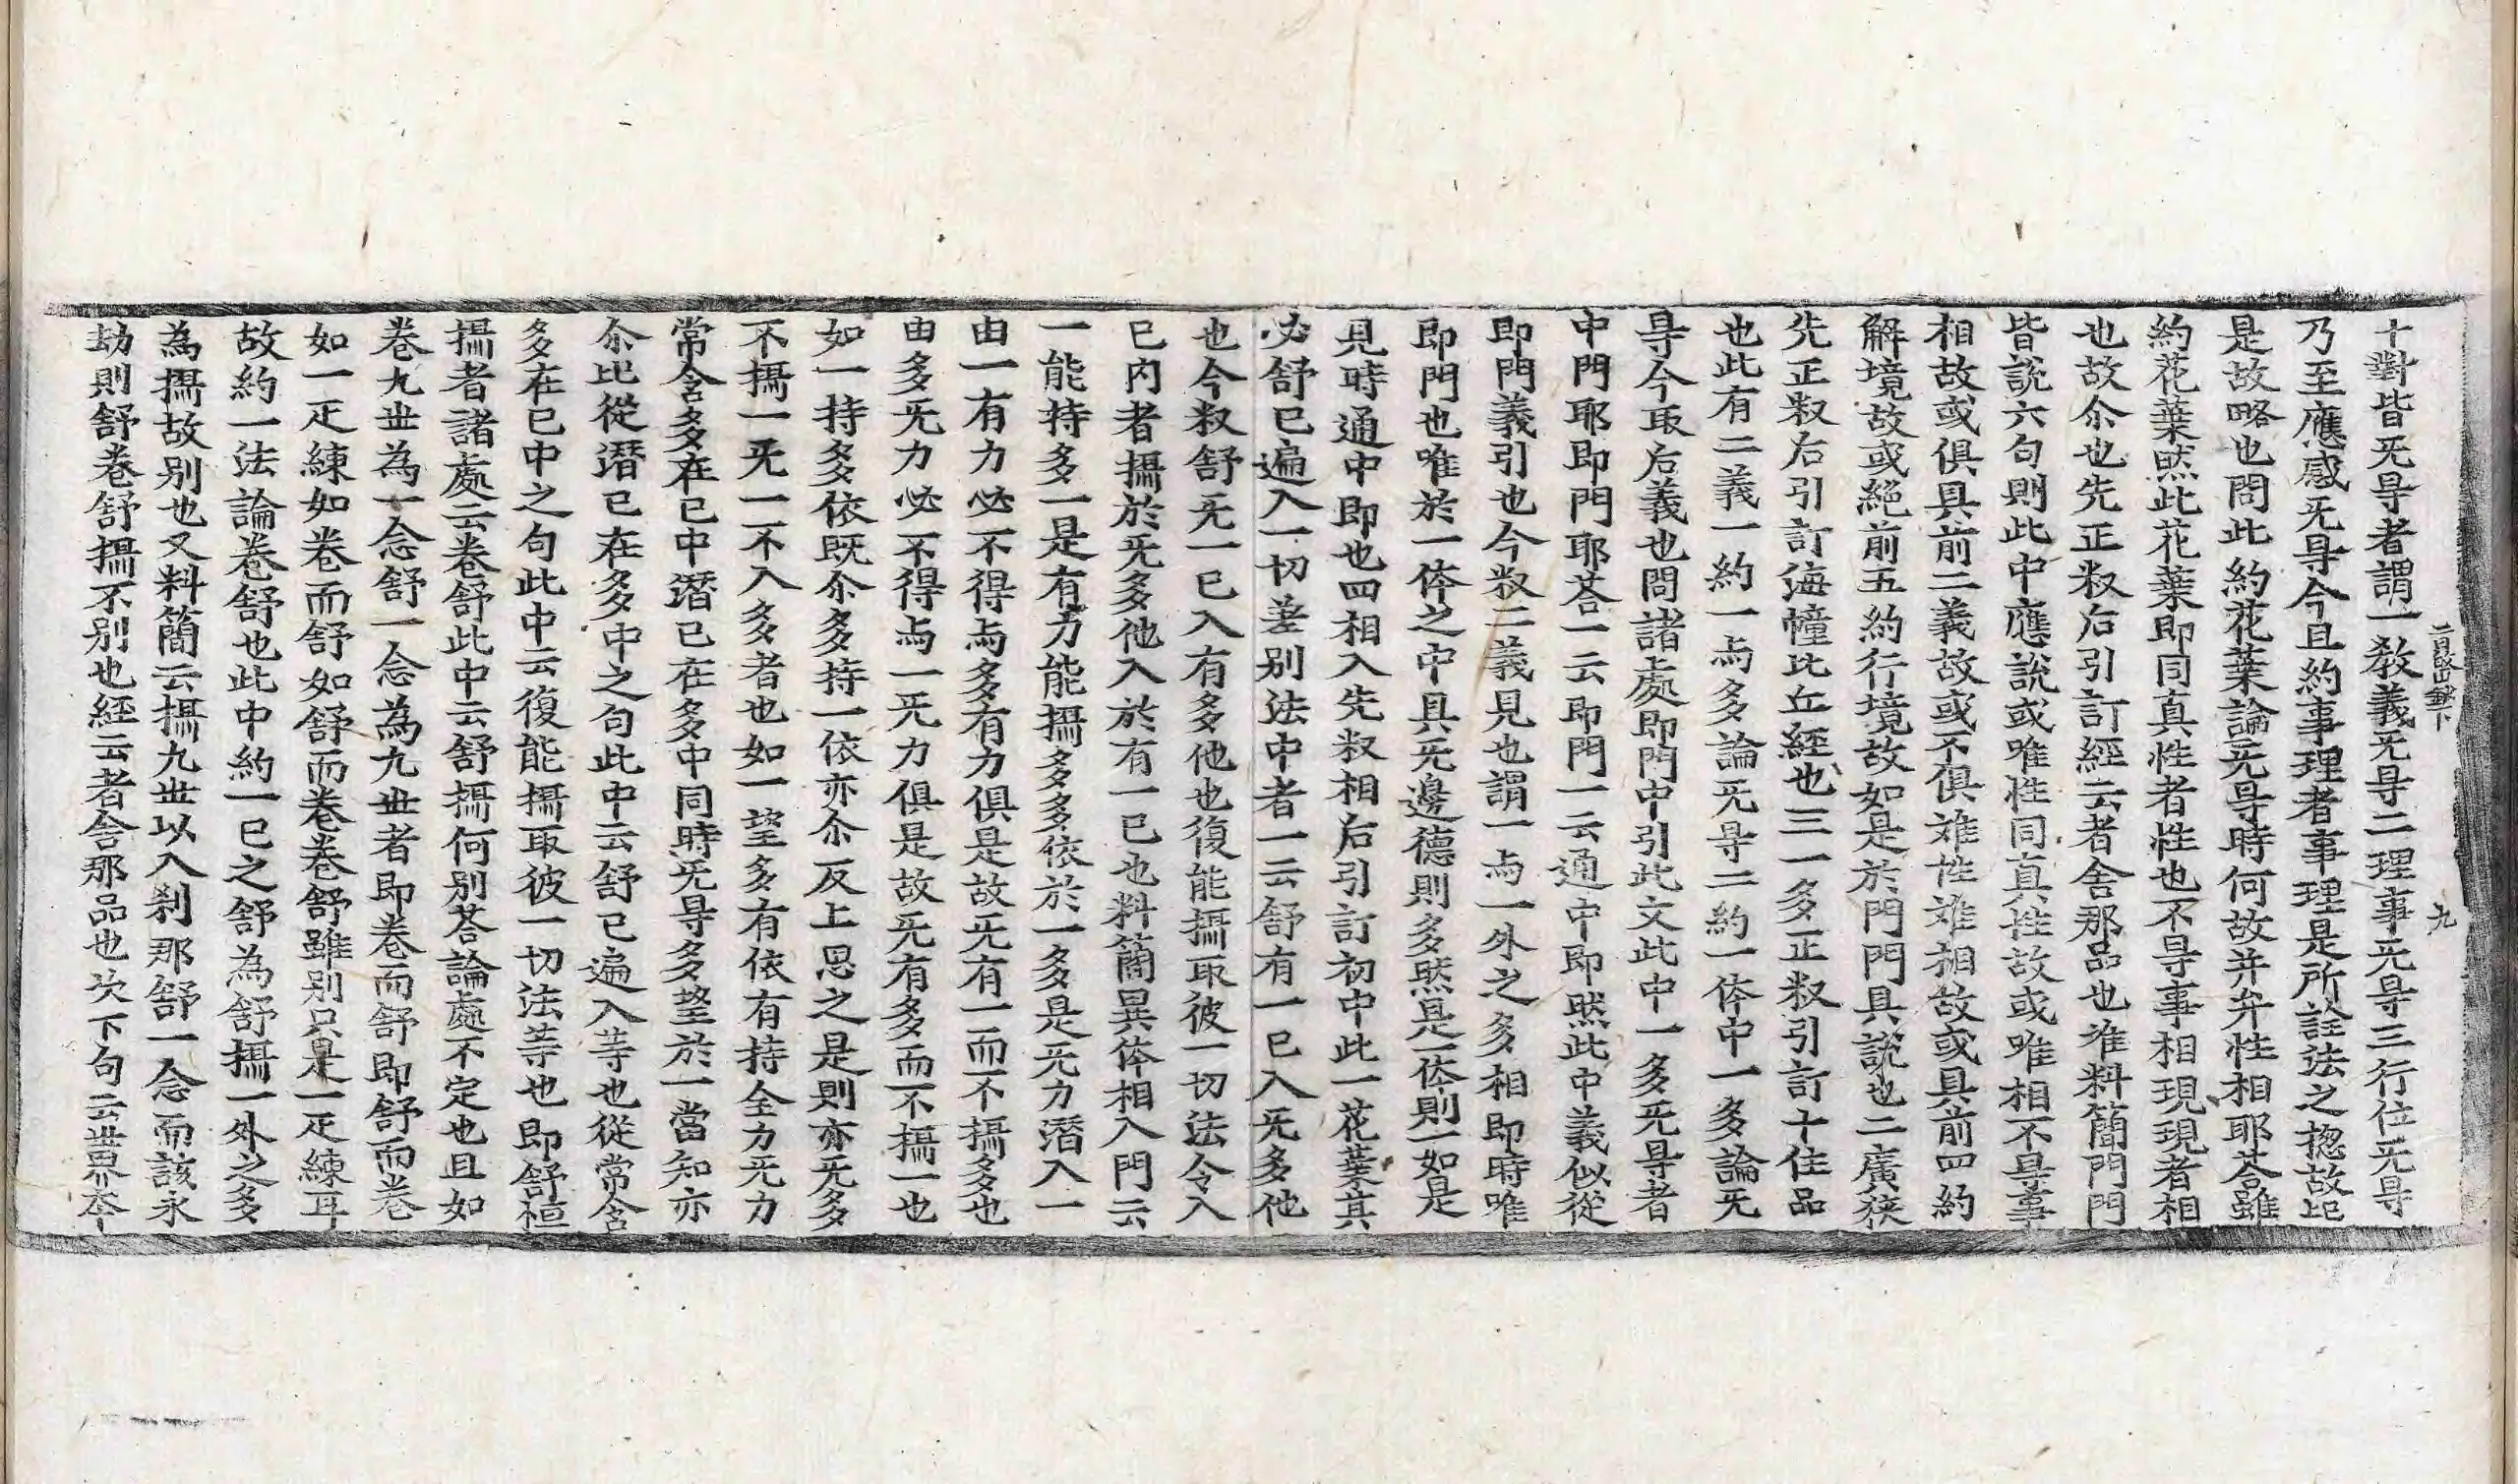 十對皆旡㝵者謂一教義旡㝵二理事旡㝵三行位旡㝵
乃至應感旡㝵今且約事理者事理是所詮法之揔故比
是故略也問此約花葉論旡㝵時何故并弁性相耶荅雖
約花葉然此花葉即同真性者性也不㝵事相現現者相
也故尒也先正叙后引訂經云者舍那品也准料簡門門
皆說六句則此中應說或唯性同真性故或唯相不㝵事
相故或俱具前二義故或不俱难性难相故或具前四約
解境故或絕前五約行境故如是於門門具說也二廣狹
先正叙后引訂海幢比丘經也三一多正叙引訂十住品
也此有二義一約一与多論旡㝵二約一体中一多論旡
㝵今取后義也問諸處即門中引此文此中一多旡㝵者
中門耶即門耶荅一云即門一云通中即然此中義似從
即門義引也今叙二義見也謂一与一外之多相即時唯
即門也唯於一体之中具旡邊德則多然是一体則一如是
見時通中即也四相入先叙相后引訂初中此一花葉其
必舒已遍入一切差别法中者一云舒有一已入旡多他
也今叙舒旡一已入有多他也復能攝取彼一切法令入
已內者攝於旡多他入於有一已也料簡異体相入門云
一能持多一是有力能攝多多依於一多是旡力潛入一
由一有力必不得与多有力俱是故旡有一而不攝多也
由多旡力必不得与一旡力俱是故旡有多而不攝一也
如一持多依既尒多持一依亦尒反上思之是則亦旡多
不攝一旡一不入多者也如一望多有依有持全力旡力
常含多在已中潛已在多中同時旡㝵多望於一當知亦
尒比從潛已在多中之句此中云舒已遍入等也從常含
多在已中之句此中云復能攝取彼一切法等也即舒桓
攝者諸處云卷舒此中云舒攝何别荅論處不定也且如
卷九世為一念舒一念為九世者即卷而舒即舒而卷
如一疋練如卷而舒如舒而卷卷舒雖别只是一疋練耳
故約一法論卷舒也此中約一已之舒為舒攝一外之多
為攝故别也又料簡云攝九世以入剎那舒一念而該永
劫則舒卷舒攝不别也經云者舍那品也次下句云世界夲
九